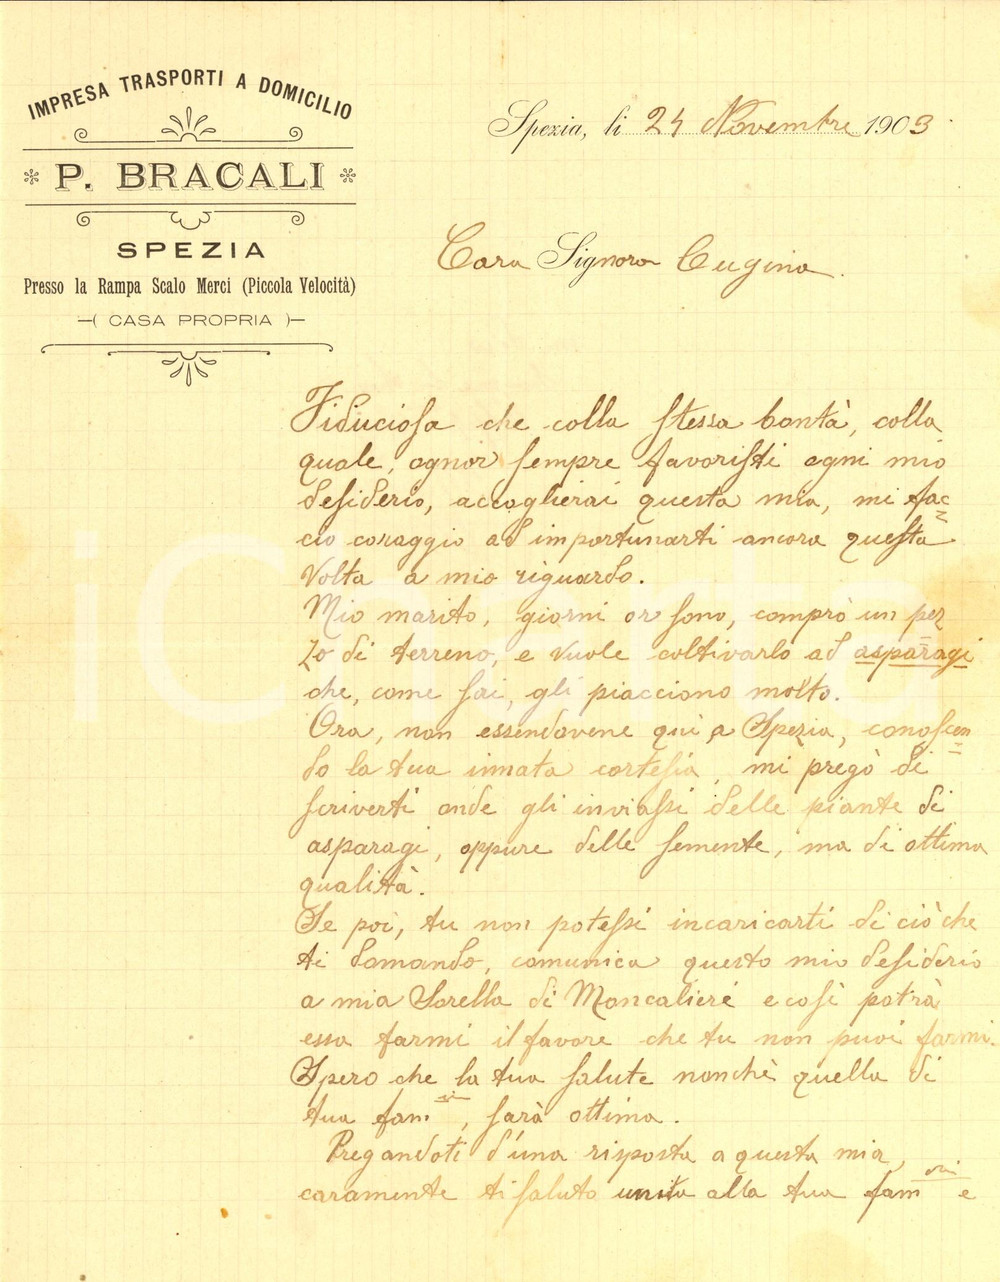 IMPRESA TRASPORTI A DOMICILIO
P. BRACALI
SPEZIA
Presso la Rampa Scalo Merci (Piccola Velocità)
—( CASA PROPRIA )—
Spezia, li 24 Novembre 1903.
Cara Signora Cugina.
Fiduciosa che colla stessa bontà, colla
quale, ognor sempre favoristi ogni mio
desiderio, accoglierai questa mia, mi fac=
cio coraggio ad importunarti ancora questa
Volta a mio riguardo.
Mio marito, giorni or sono, comprò un pez=
zo di terreno, e vuole coltivarlo ad asparagi
che, come sai, gli piacciono molto.
Ora, non essendovene quì a Spezia, conoscen=
do la tua innata cortesia, mi pregò di
scriverti onde gli inviassi delle piante di
asparagi, oppure delle semente, ma di ottima
qualità.
Se poi, tu non potessi incaricarti di ciò che
ti domando, comunica questo mio desiderio
a mia Sorella di Moncalieri e così potrà
essa farmi il favore che tu non puoi farmi.
Spero che la tua salute nonchè quella di
tua fam, sarà ottima.
Pregandoti d'una risposta a questa mia,
caramente ti saluto unita alla tua fam e
iCharta